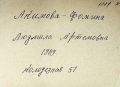 Акимова-Фомина
Людмила Артемовна
1989
Колодезная 51